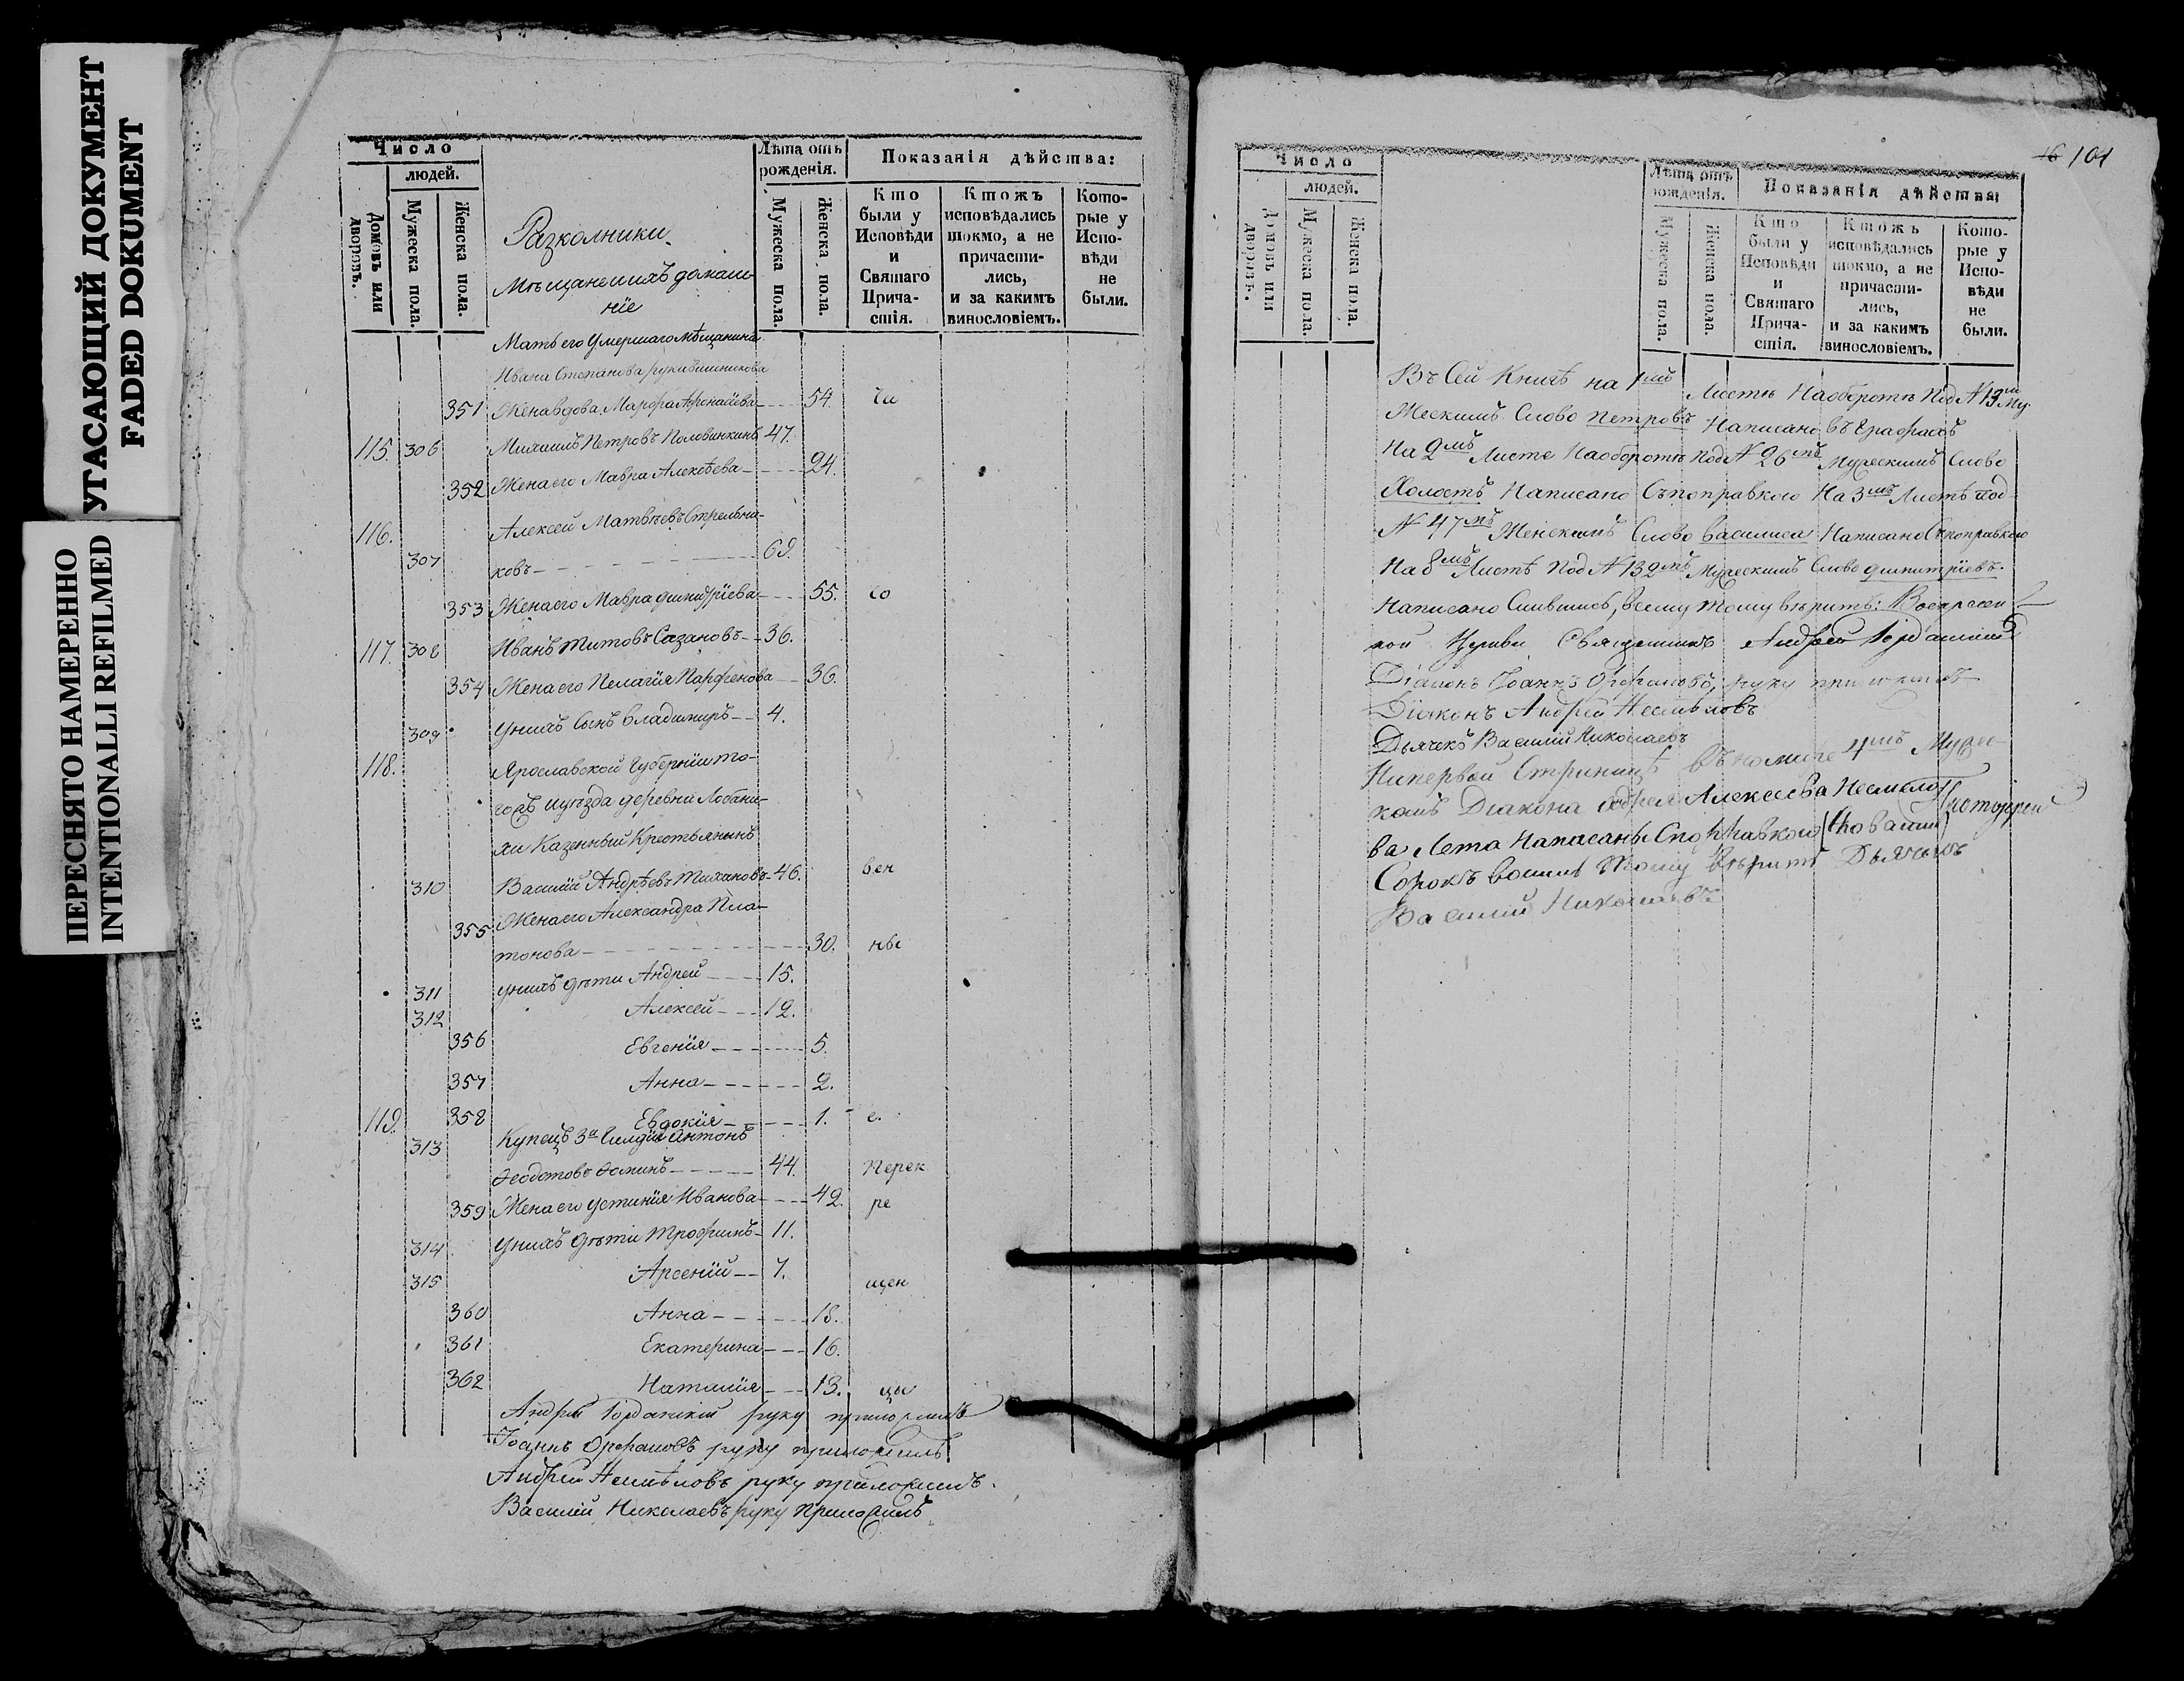 УГАСАЮЩИЙ ДОКУМЕНТ
FADED DOKUMENT
ПЕРЕСНЯТО НАМЕРЕННО
INTENTIONALLI REFILMED
Число
людей.
Домовъ или дворовъ.
Мужеска пола.
Женска пола.
Разколники
Мѣщане ихъ домаш-
ніе
Лѣта отъ рожденія.
Мужеска пола.
Женска пола.
Показанія дѣйства:
Кто были у Исповѣди и Святаго Прича-стія.
Ктожъ исповѣдались токмо, а не причасти-лись, и за какимъ винословіемъ.
Кото-рые у Испо-вѣди не были.
Мать его Умершаго мѣщанина
Ивана Степанова рукавишникова
351 Жена вдова Марфа Афонасіева 54. Чи
115. 306 Михаилъ Петровъ Половинкинъ 47.
352 Жена его Мавра Алексѣева 24.
116. Алексей Матвѣевъ Стрельни-
307 ковъ 69.
353 Жена его Мавра димитріева 55. со
117. 308 Иванъ Титовъ Сазановъ 36.
354 Жена его Пелагія Парфенова 36.
309 Унихъ Сынъ Владимиръ 4.
118. Ярославской Губерніи то-
гожъ иуѣзда деревни Лобани-
хи Казенный Крестьянинъ
310 Василій Андрѣевъ Тихановъ 46. вен
355 Жена его Александра Пла-
тонова 30. ны
311 унихъ дѣти Андрей 15.
312 Алексей 12.
356 Евгенія 5.
357 Анна 2.
119. 358 Евдокія 1. е.
313 Купецъ 3й Гилдіи Антонъ
Феодотовъ Фоминъ 44. Перек
359 Жена его Устинія Иванова 42. ре
314 Унихъ дѣти Трофимъ 11.
315 Арсеній 7. щен
360 Анна 18.
361 Екатерина 16.
362 Наталія 13. цы
Андрей Іорданскій руку приложилъ
Іоаннъ Орфановъ руку приложилъ
Андрей Несмѣловъ руку приложилъ.
Василій Николаевъ руку приложилъ.
16 101
Число
людей.
Домовъ или дворовъ.
Мужеска пола.
Женска пола.
Лѣта отъ рожденія.
Мужеска пола.
Женска пола.
Показанія дѣйства:
Кто были у Исповѣди и Святаго Прича-стія.
Ктожъ исповѣдались токмо, а не причасти-лись, и за какимъ винословіемъ.
Кото-рые у Испо-вѣди не были.
Въ Сей Книгѣ на 1мъ Листѣ Наоборотѣ Под N 13м Му-
жескимъ Слово Петровъ Написано въ Ерафахъ
На 2мъ Листе Наоборотѣ Под N 26мъ Мужескимъ Слово
Холостъ Написано Съпоправкою На 3мъ Листѣ под
N 47мъ Женскимъ Слово василиса Написано Съпоправкою
На 8мъ Листѣ Под N 132мъ Мужескимъ Слово димитріевъ.
Написано всему тому вѣритъ: Воскресен-
кой Церкви Священникъ Андрей Іорданскій
Діаконъ Іоаннъ Орфановъ, руку приложилъ
Діаконъ Андрей Несмѣловъ
Дьячекъ Василій Николаевъ
Напервой Страницѣ въ номире 4мъ Мужес-
комъ Діакона Андрея Алексеева Несмело-
ва Лета Написаны Споправкою которой
Сорокъ восимь Тому вѣритъ Дьячекъ
Василій Николаевъ